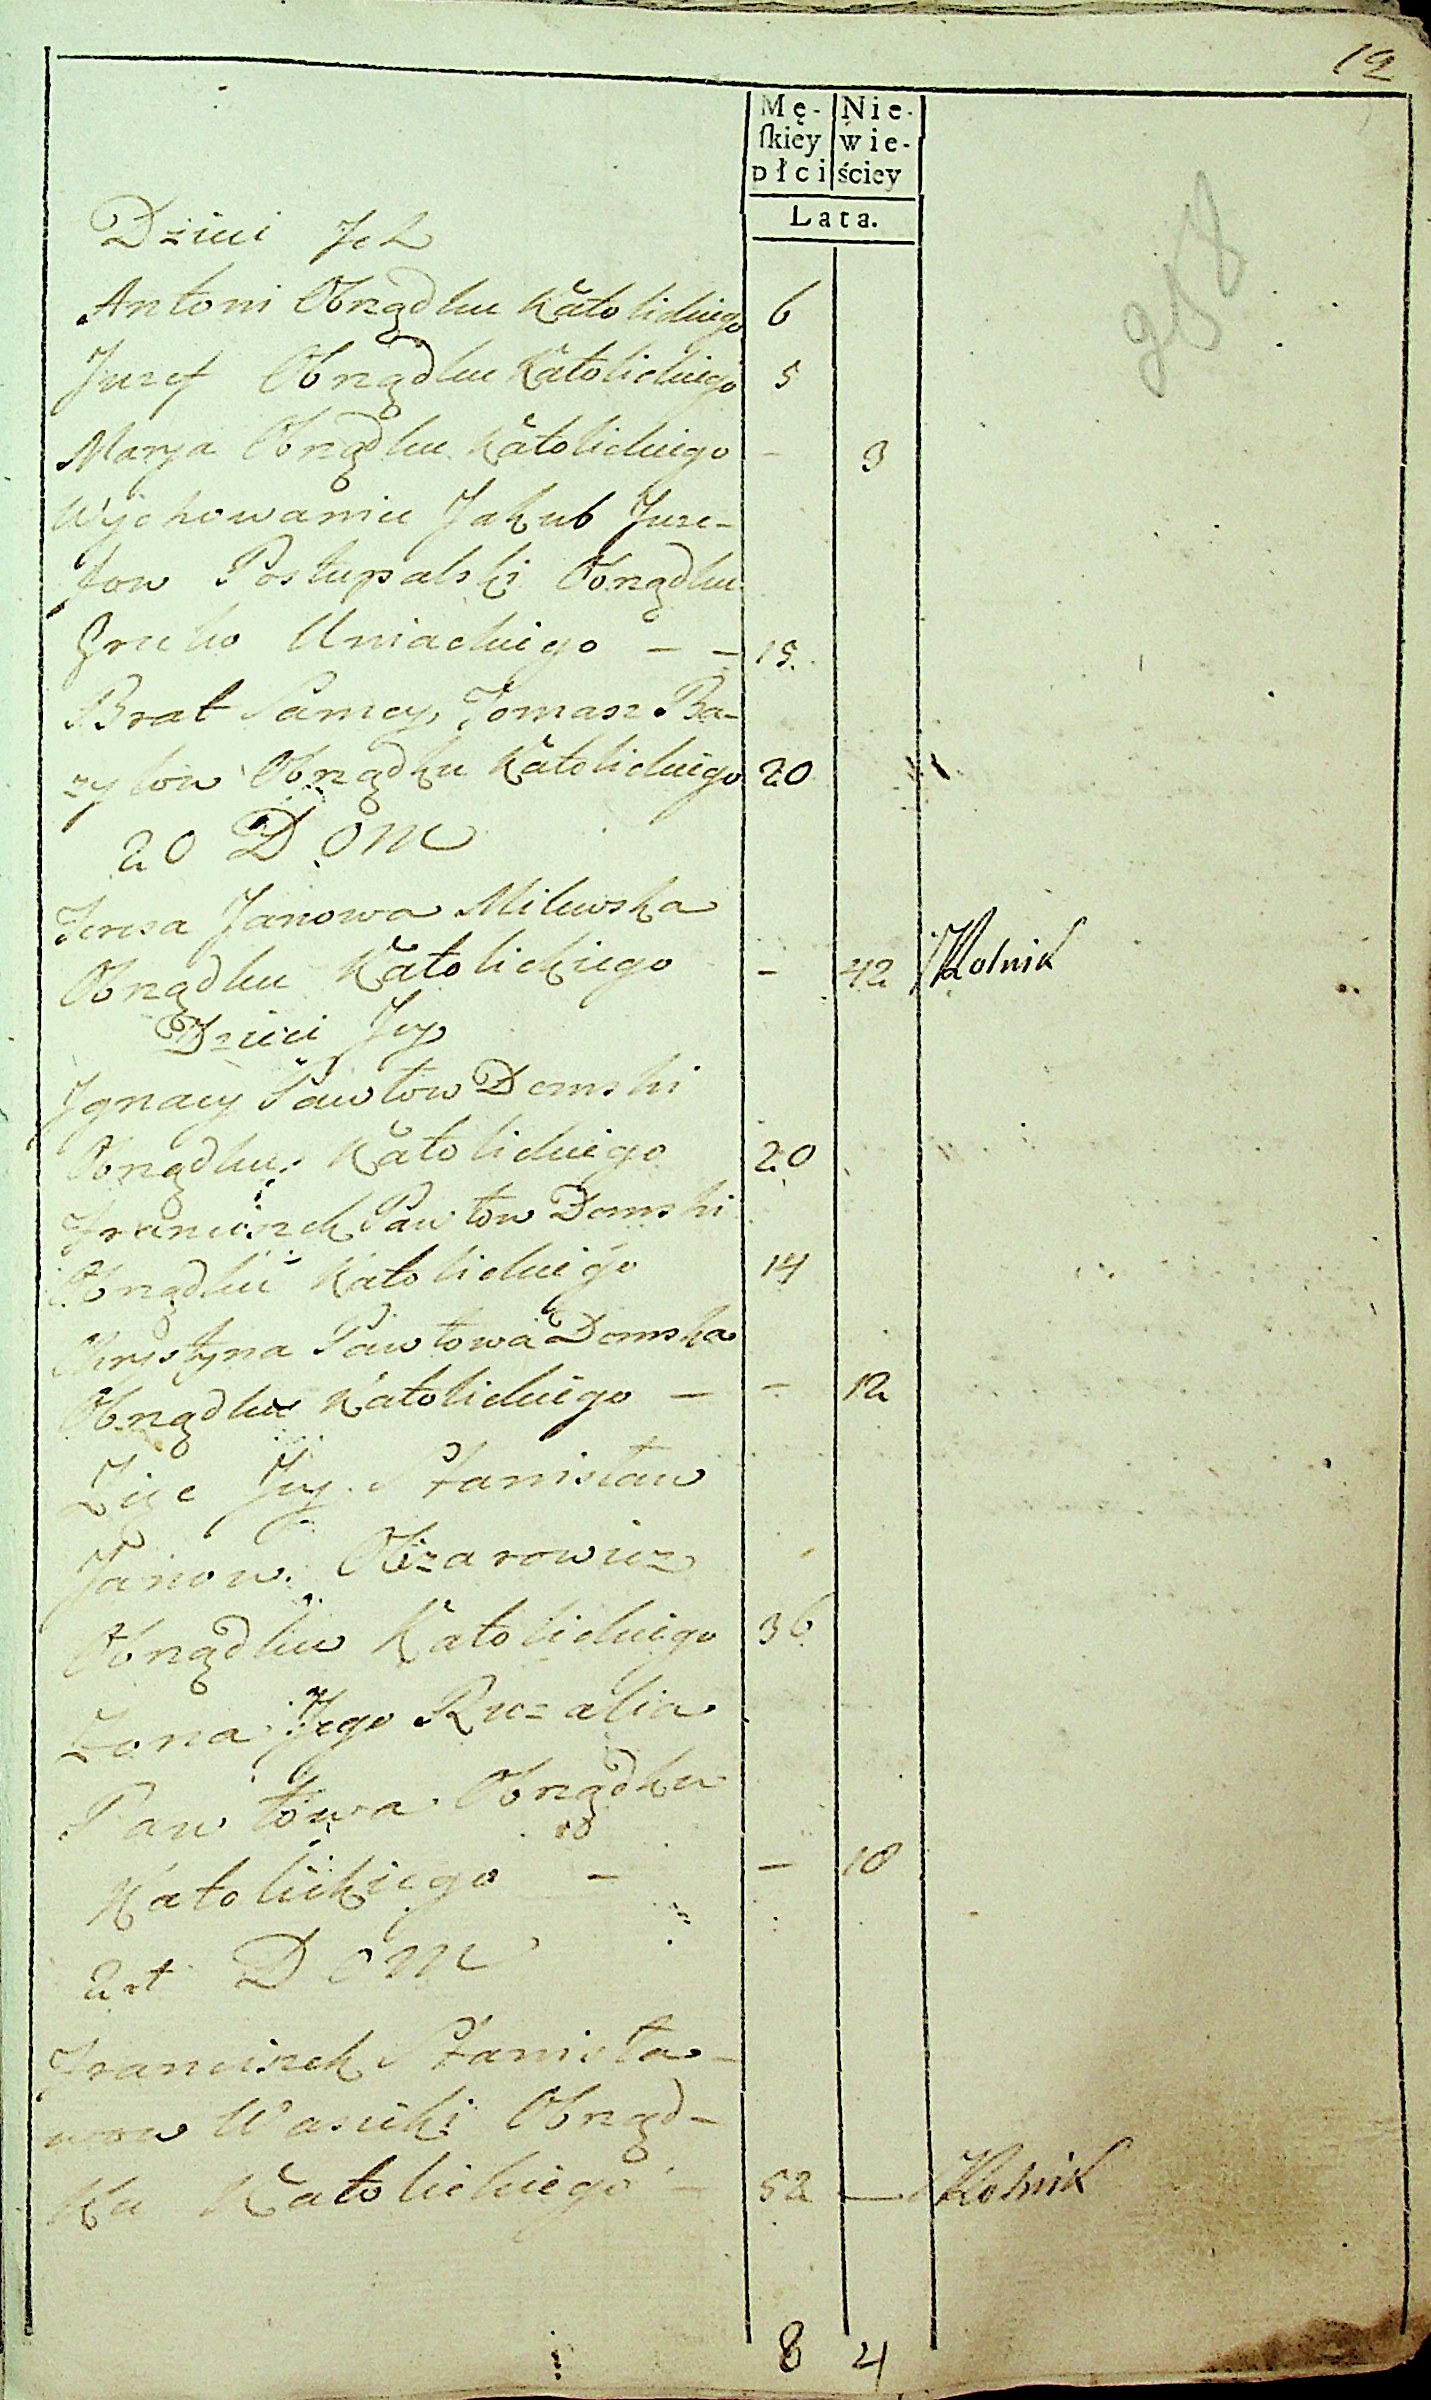 12
Mę- Nie-
ſkiey wie-
płci ściey
Lata.
258
Dzieci Jch
Antoni Obrządku Katolickiego 6
Juzef Obrządku Katolickiego 5
Marya Obrządku Katolickiego - 3
Wychowaniec Jakub Juze-
fow Postupalski Obrządku
Greko Uniackiego - - 15
Brat Samey, Tomasz Ba-
zylow Obrządku Katolickiego 20
20 Dom
Teresa Janowa Milewska
Obrządku Katolickiego - 42 Rolnik
Dzieci Jey
Jgnacy Pawłow Domski
Obrządku Katolickiego 20
Franciszek Pawłow Domski
Obrządku Katolickiego 14
Chrystyna Pawłowa Domska
Obrządku Katolickiego - - 12
Zięc Jey Stanisław
Janow
Obrządku Katolickiego 36
Żona Jego Ruzalia
Pawłowa Obrządku
Katolickiego - - 18
21 Dom
Franciszek Stanisła-
wow Wasicki Obrząd-
ku Katolickiego - 52 - Rolnik
8 4